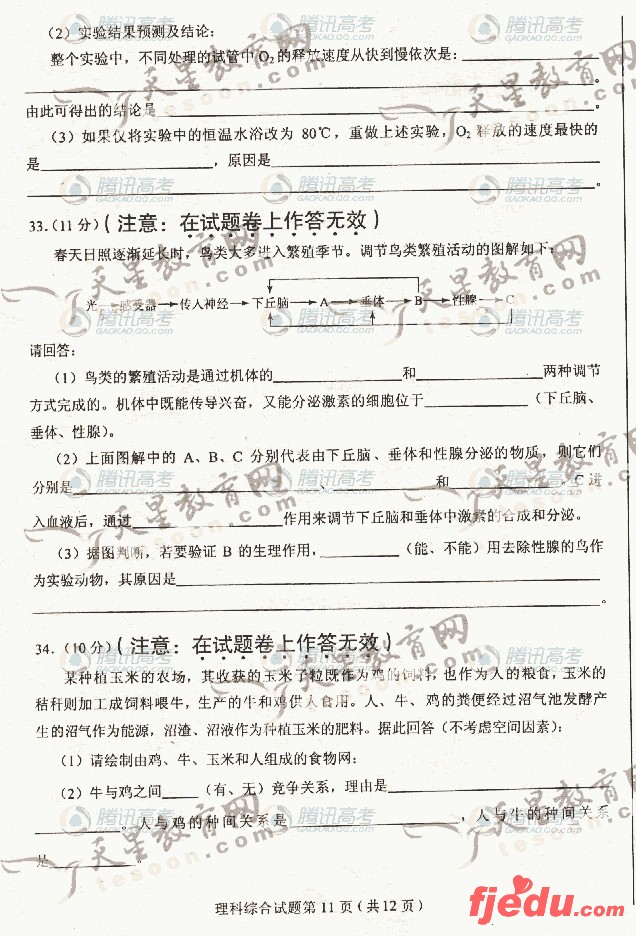 (2)实验结果预测及结论:
整个实验中，不同处理的试管中O₂的释放速度从快到慢依次是:
。
由此可得出的结论是。
(3)如果仅将实验中的恒温水浴改为80℃，重做上述实验，O₂释放的速度最快的
是，原因是
。
33.(11分)(注意：在试题卷上作答无效)
春天日照逐渐延长时，鸟类大多进入繁殖季节。调节鸟类繁殖活动的图解如下:
光→感受器→传入神经→下丘脑→A→垂体→B→性腺→C
请回答:
(1)鸟类的繁殖活动是通过机体的和两种调节
方式完成的。机体中既能传导兴奋，又能分泌激素的细胞位于(下丘脑、
垂体、性腺)。
(2)上面图解中的A、B、C分别代表由下丘脑、垂体和性腺分泌的物质，则它们
分别是、和，C进
入血液后，通过作用来调节下丘脑和垂体中激素的合成和分泌。
(3)据图判断，若要验证B的生理作用，(能、不能)用去除性腺的鸟作
为实验动物，其原因是
。
34.(10分)(注意：在试题卷上作答无效)
某种植玉米的农场，其收获的玉米子粒既作为鸡的饲料，也作为人的粮食，玉米的
秸秆则加工成饲料喂牛，生产的牛和鸡供人食用。人、牛、鸡的粪便经过沼气池发酵产
生的沼气作为能源，沼渣、沼液作为种植玉米的肥料。据此回答(不考虑空间因素):
(1)请绘制由鸡、牛、玉米和人组成的食物网:
(2)牛与鸡之间(有、无)竞争关系，理由是
。人与鸡的种间关系是，人与牛的种间关系
是。
理科综合试题第11页(共12页)
腾讯高考
GAOKAO.QQ.COM
天星教育网
tesoon.com
fjedu.com